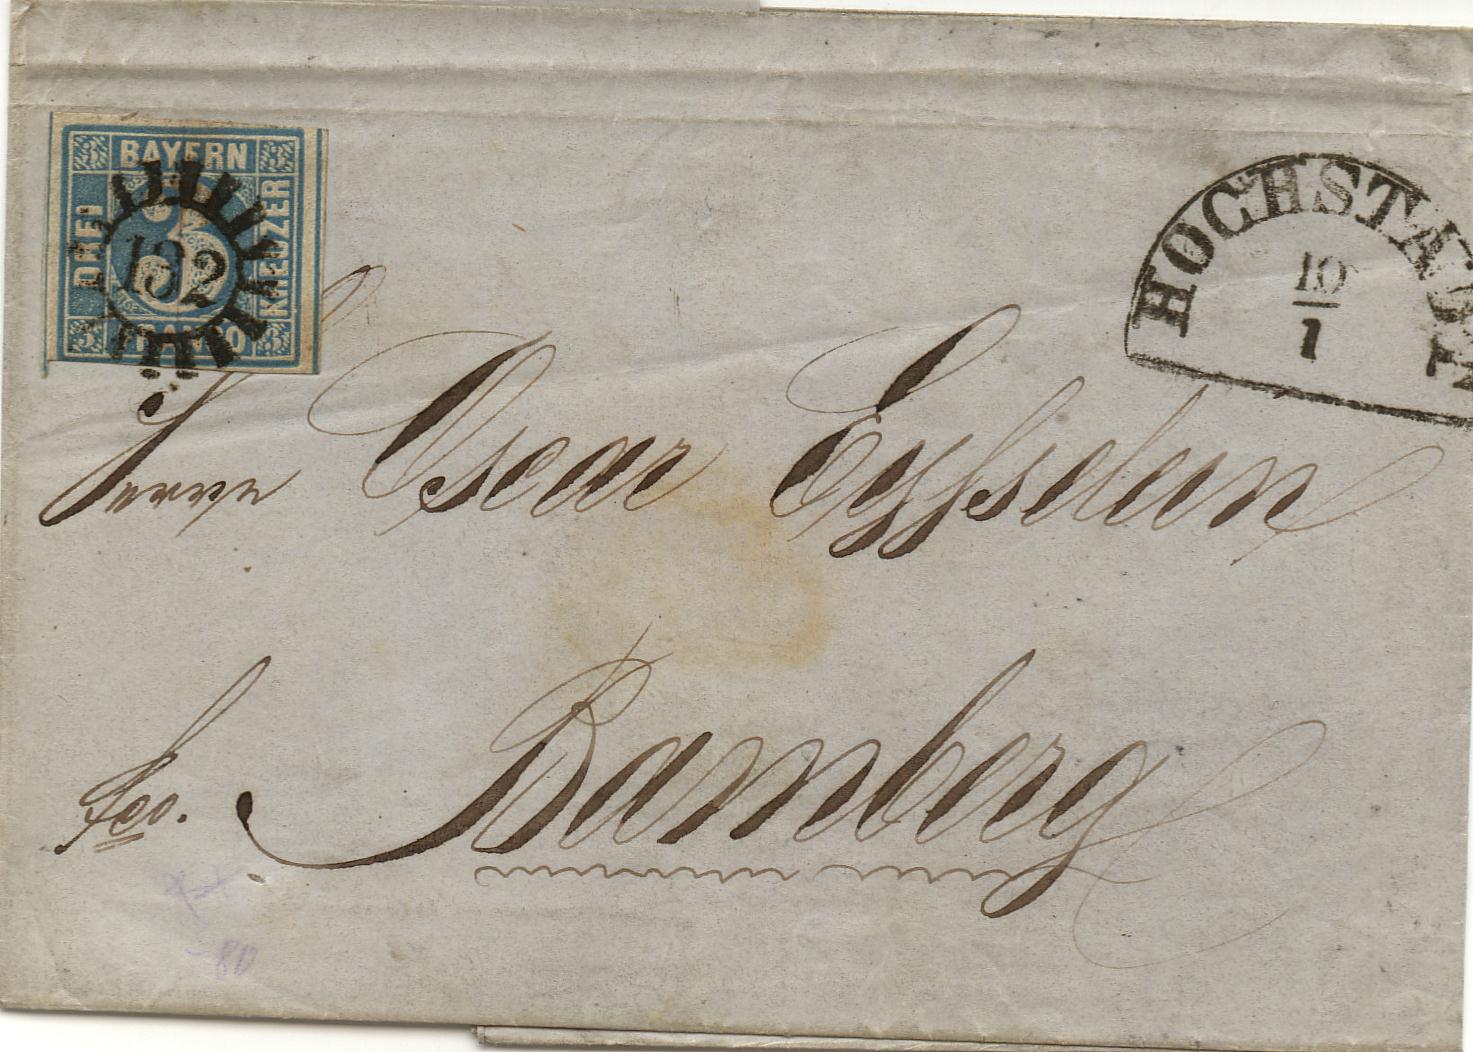 BAYERN
DREI
KREUZER
FRANCO
3
3
3
3
3
132
HOCHSTADT
10
1
Herrn Oscar Eyßelein
fco. Bamberg
80